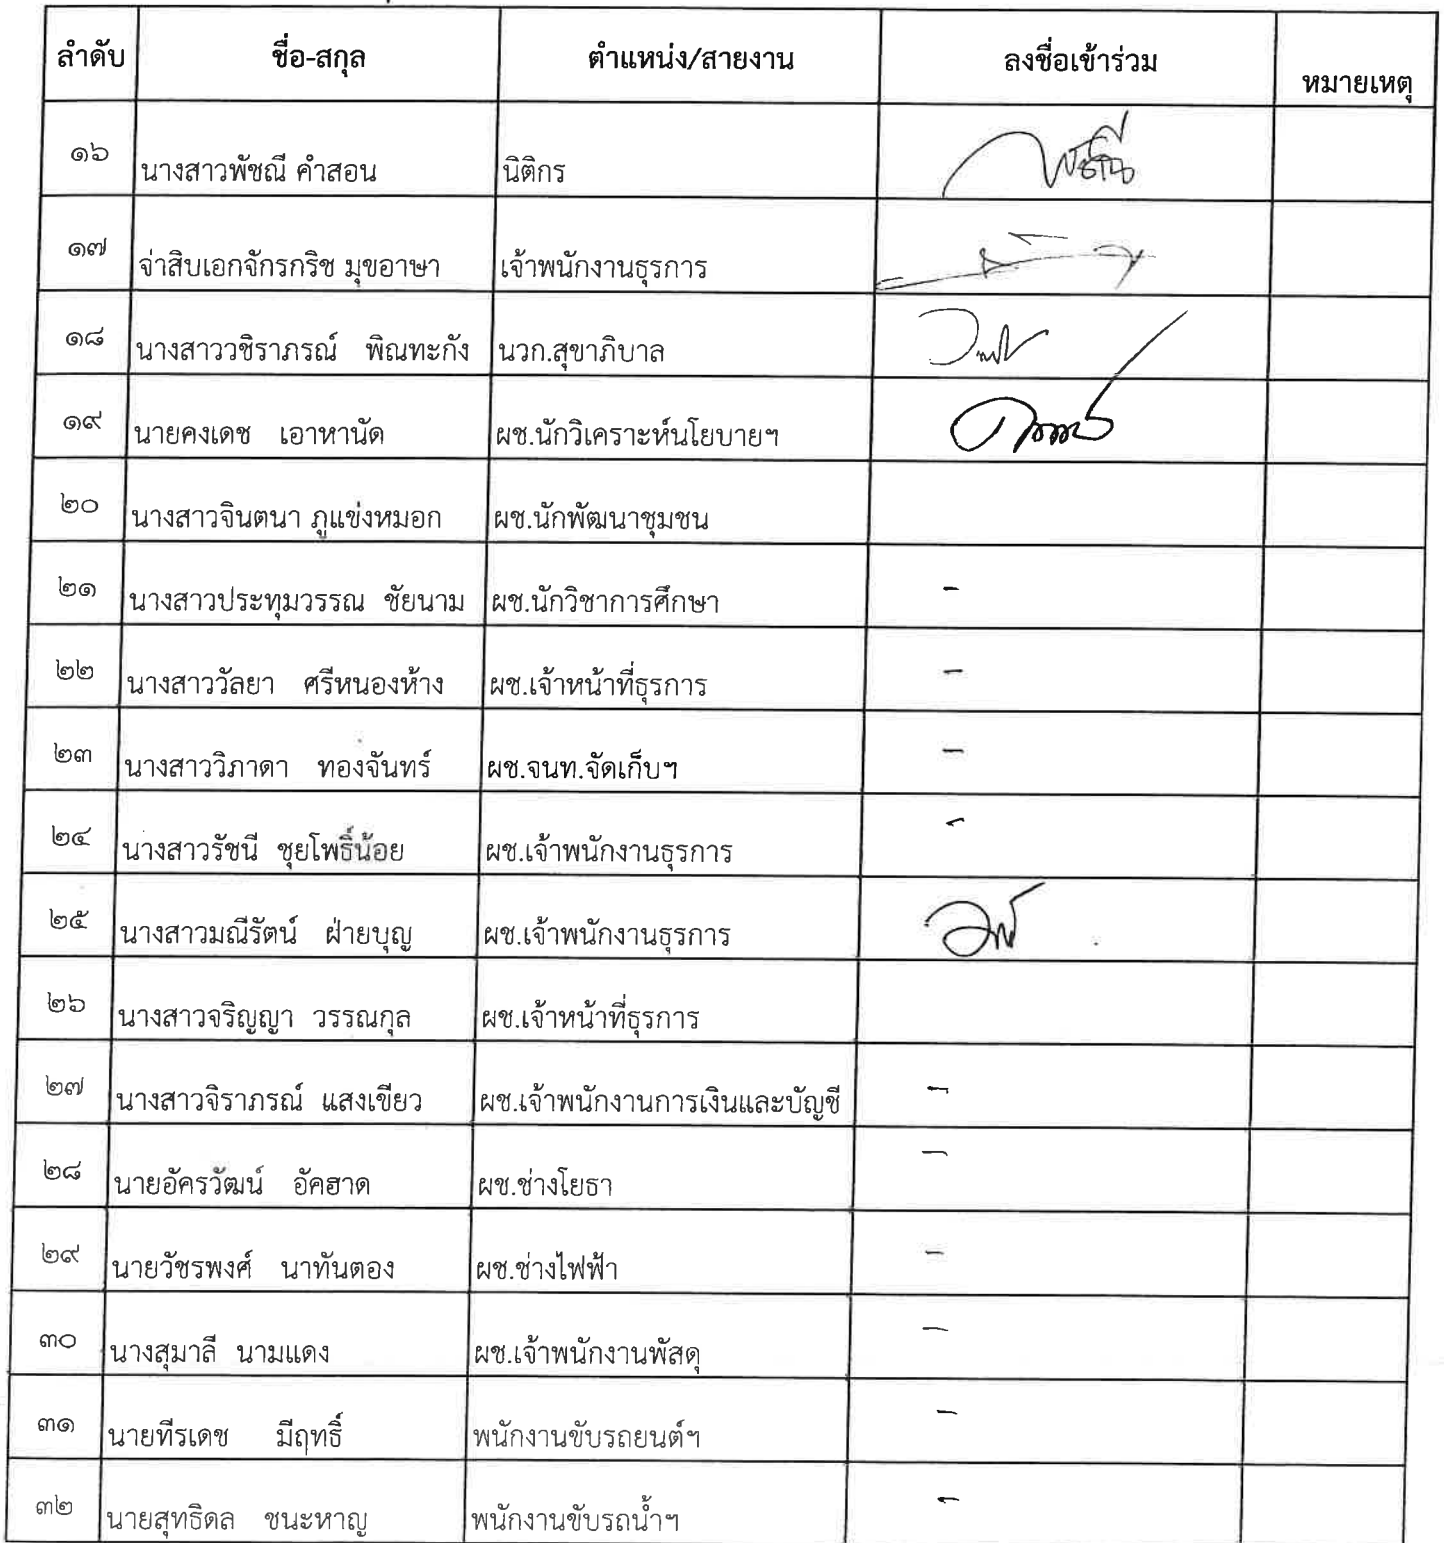 ลำดับ ชื่อ-สกุล ตำแหน่ง/สายงาน ลงชื่อเข้าร่วม หมายเหตุ
๑๖ นางสาวพัชณี คำสอน นิติกร
๑๗ จ่าสิบเอกจักรกริช มุขอาษา เจ้าพนักงานธุรการ
๑๘ นางสาววชิราภรณ์ พิณทะกัง นวก.สุขาภิบาล
๑๙ นายคงเดช เอาหานัด ผช.นักวิเคราะห์นโยบายฯ
๒๐ นางสาวจินตนา ภูแข่งหมอก ผช.นักพัฒนาชุมชน
๒๑ นางสาวประทุมวรรณ ชัยนาม ผช.นักวิชาการศึกษา -
๒๒ นางสาววัลยา ศรีหนองห้าง ผช.เจ้าหน้าที่ธุรการ -
๒๓ นางสาววิภาดา ทองจันทร์ ผช.จนท.จัดเก็บฯ -
๒๔ นางสาวรัชนี ชุยโพธิ์น้อย ผช.เจ้าพนักงานธุรการ -
๒๕ นางสาวมณีรัตน์ ฝ่ายบุญ ผช.เจ้าพนักงานธุรการ
๒๖ นางสาวจริญญา วรรณกุล ผช.เจ้าหน้าที่ธุรการ
๒๗ นางสาวจิราภรณ์ แสงเขียว ผช.เจ้าพนักงานการเงินและบัญชี -
๒๘ นายอัครวัฒน์ อัคฮาด ผช.ช่างโยธา -
๒๙ นายวัชรพงศ์ นาทันตอง ผช.ช่างไฟฟ้า -
๓๐ นางสุมาลี นามแดง ผช.เจ้าพนักงานพัสดุ -
๓๑ นายทีรเดช มีฤทธิ์ พนักงานขับรถยนต์ฯ -
๓๒ นายสุทธิดล ชนะหาญ พนักงานขับรถน้ำฯ -